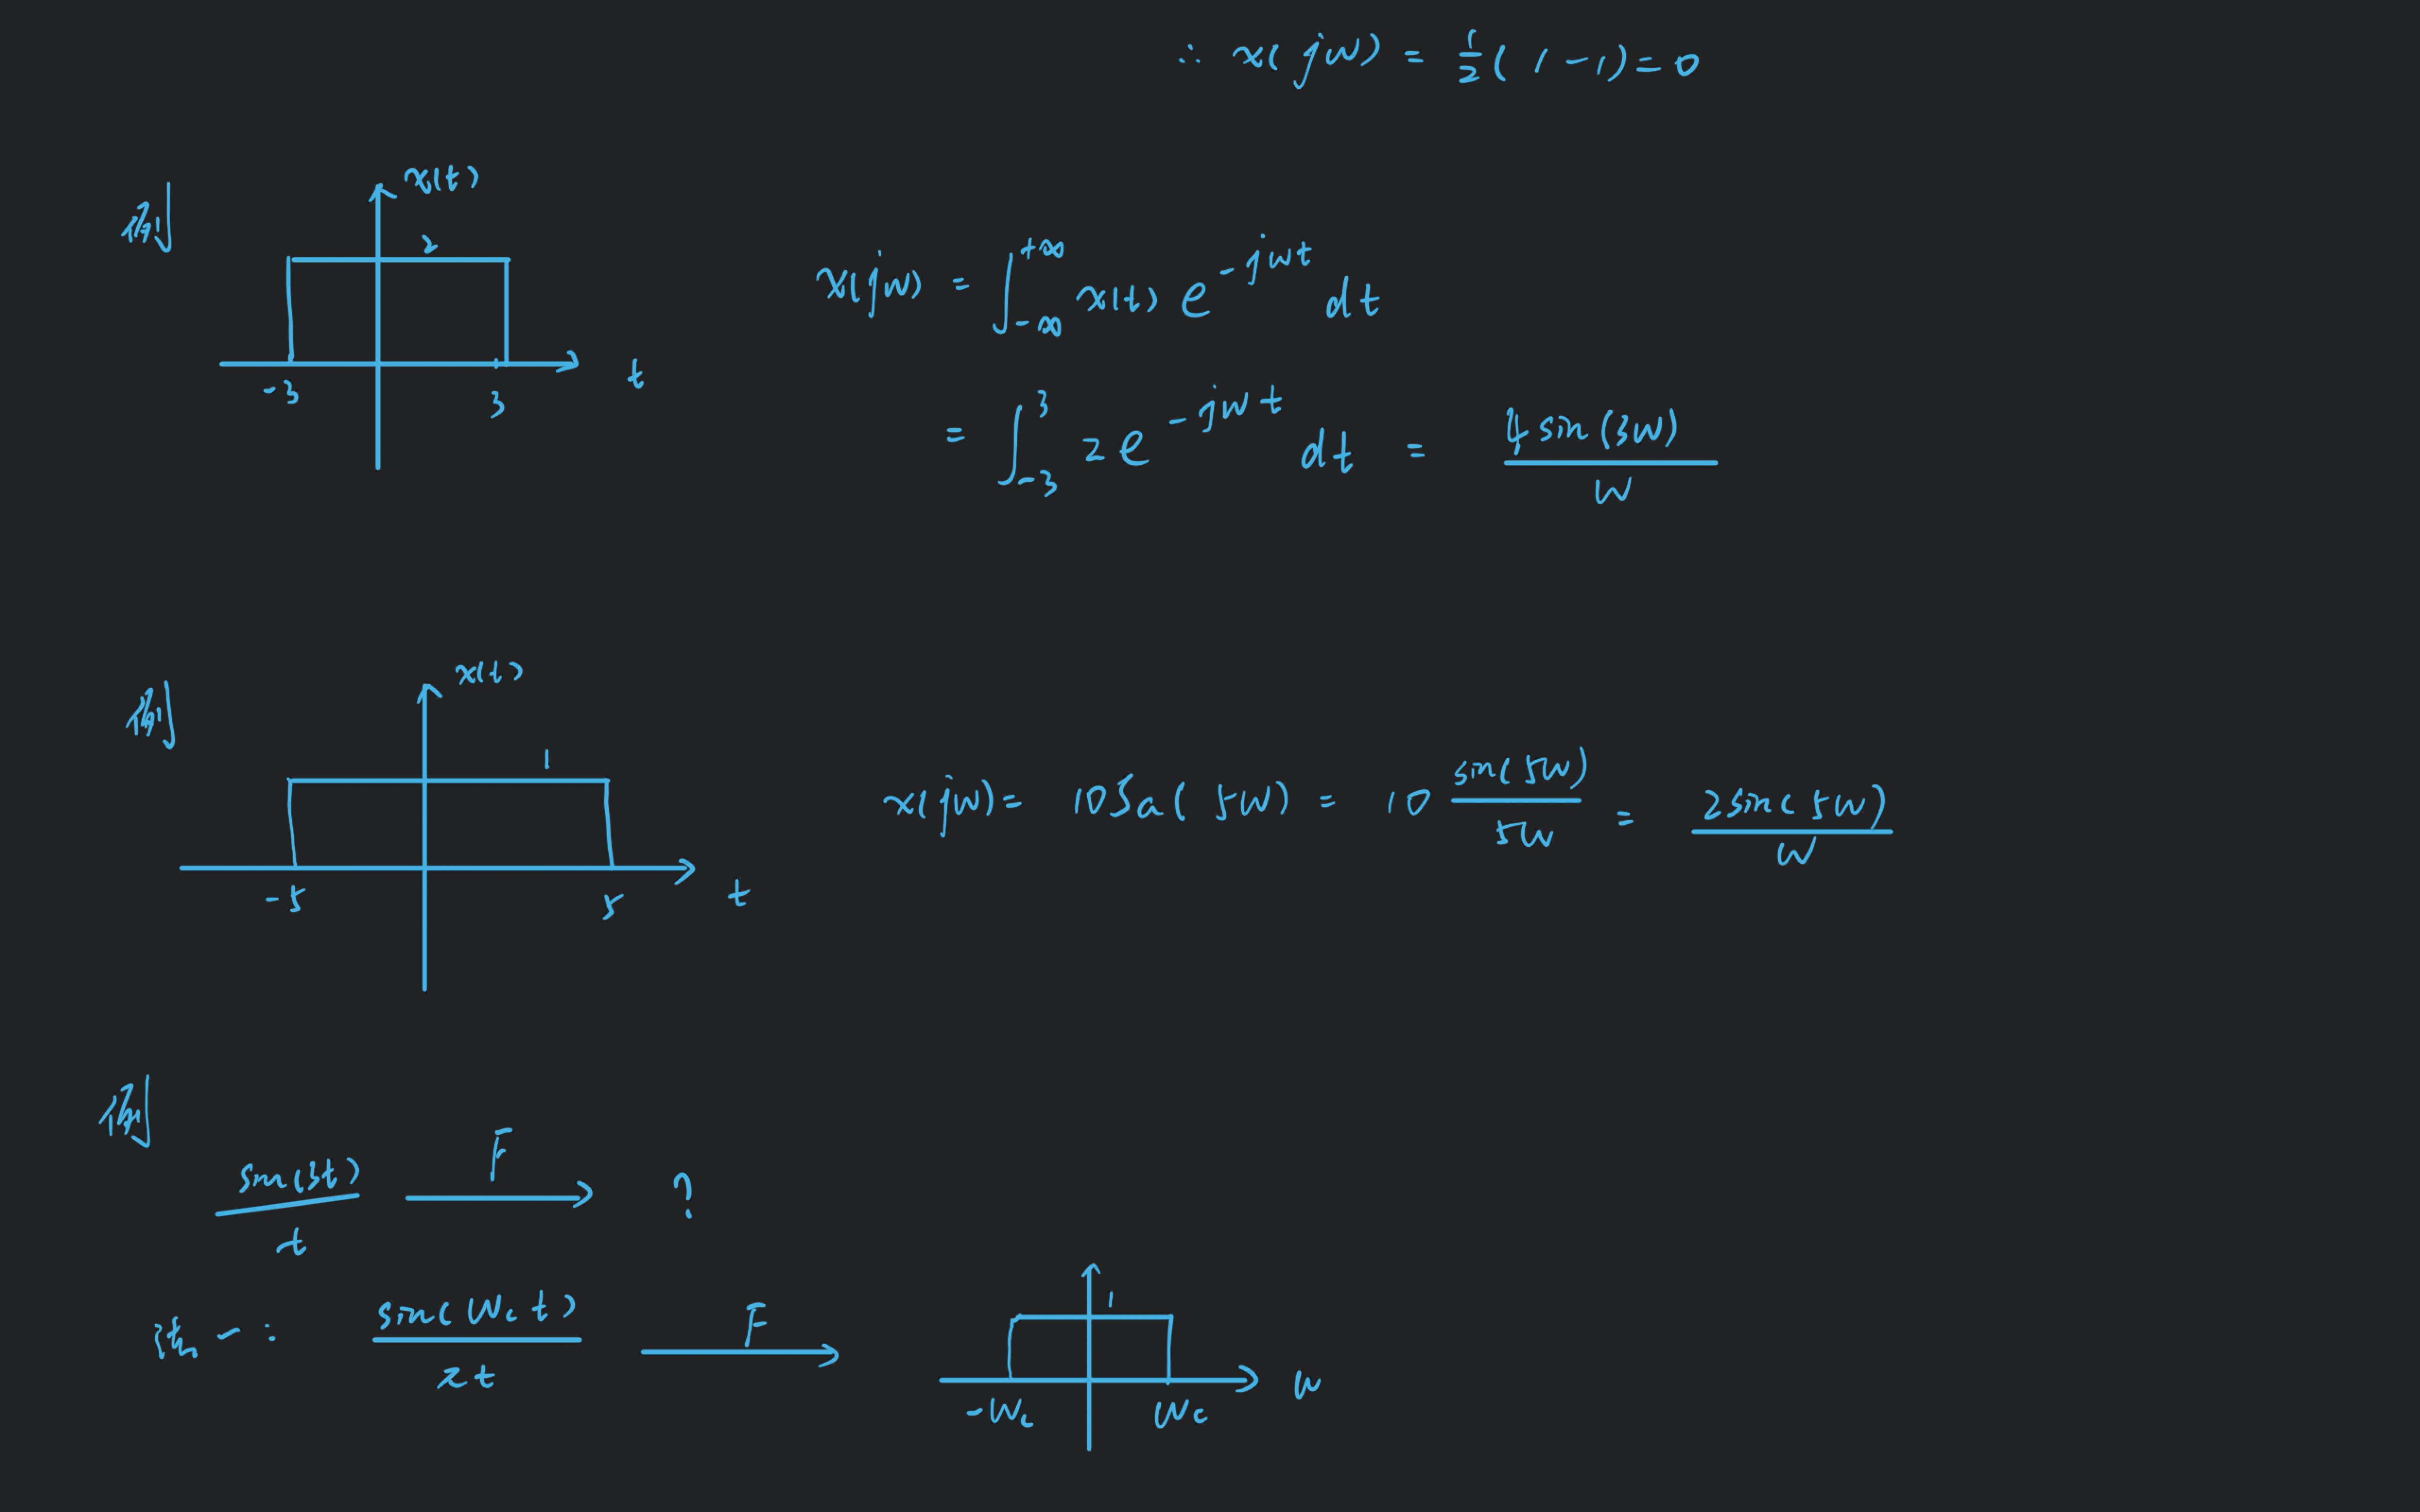 ∴ x(jw) = 1/2 (1-1) = 0
例
x(t)
2
-3 3 t
x(jw) = ∫_{-∞}^{+∞} x(t) e^{-jwt} dt
= ∫_{-3}^{3} 2e^{-jwt} dt = 4sin(3w)/w
例
x(t)
1
-5 5 t
x(jw) = 10Sa(5w) = 10 sin(5w)/5w = 2sin(5w)/w
例
sin(3t)/t F→ ?
法一: sin(Wct)/πt F→
1
-Wc Wc w